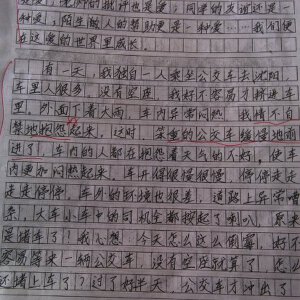 爱；老师的批评也是爱；同学的友谊还是一
种爱；陌生的人的帮助更是一种爱……我们便
在这爱的世界里成长。
有一天，我独自一人乘坐公交车去沈阳，
车里人很多，没有空座，我好不容易才挤进车
里。外面下着大雨，车内异常闷热，我情不自
禁地抱怨起来，这时，笨重的公交车缓慢地前
进了，车内的人都在抱怨着天公的不好，使车
内更加闷热起来。车开得很慢很慢，停停走走
走走停停，车外的环境也很差，道路上异常嘈
杂，大车小车中的司机全都按起了喇叭，原来
是堵车了！我心想：今天怎么这么倒霉，好不
容易等来一辆公交车，没有空座就算了，怎么
还堵车了？过了好半天，公交车才冲出了